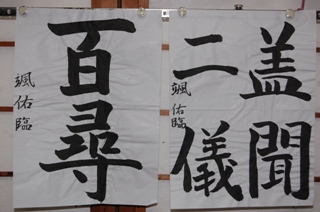 盖聞
二儀
颯佑臨
百尋
颯佑臨